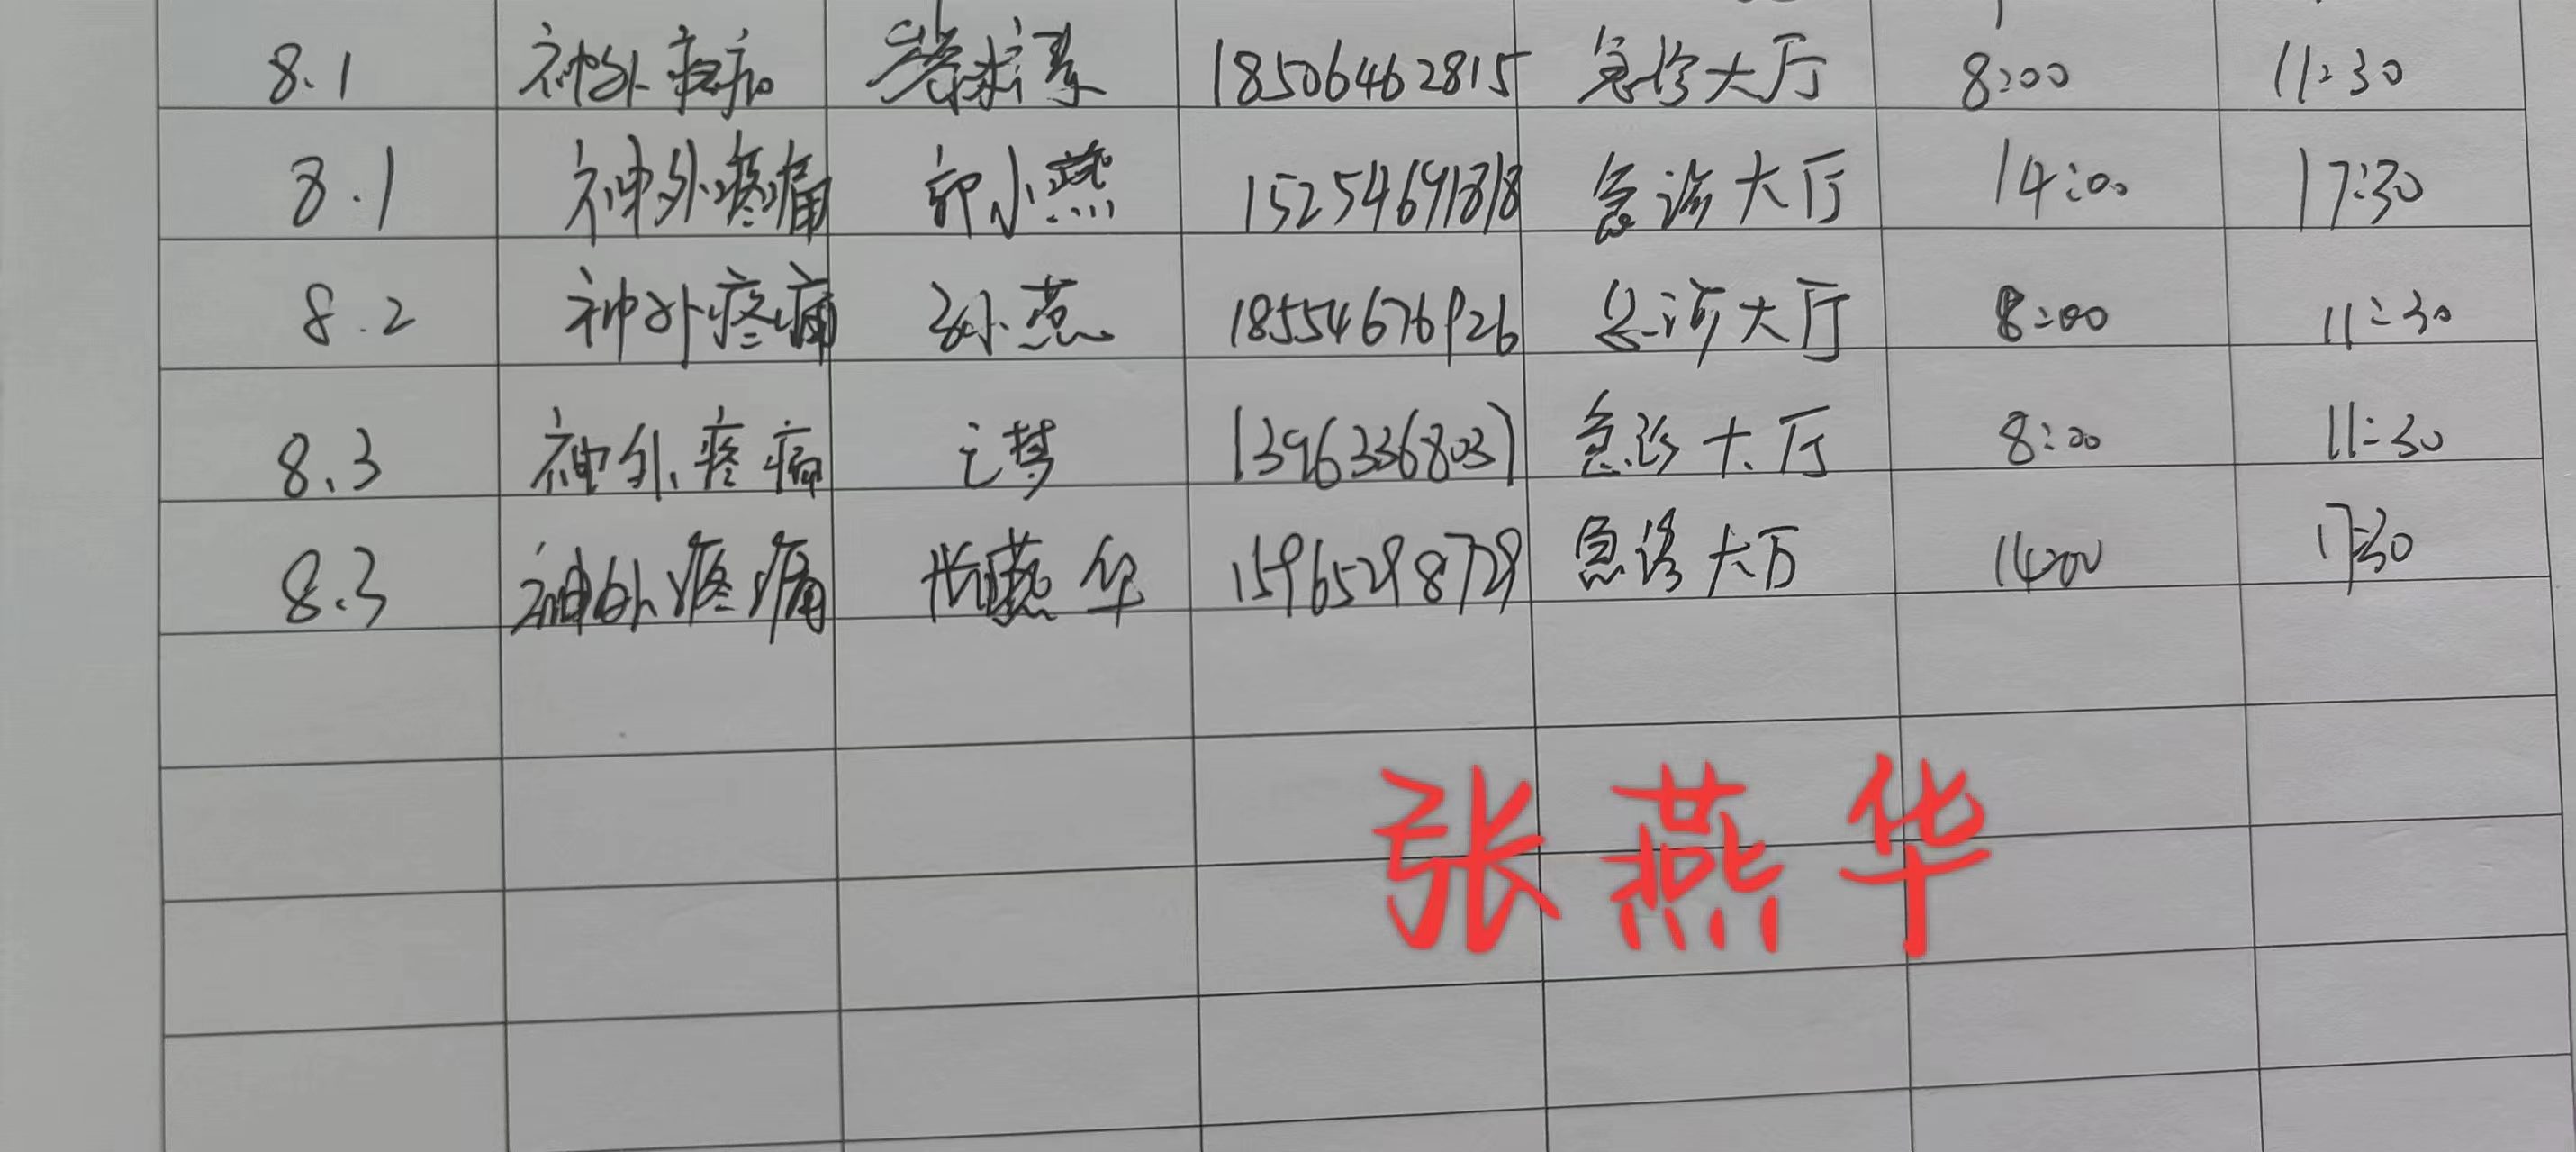 8.1 神外疼痛 18506462815 急诊大厅 8:00 11:30
8.1 神外疼痛 郭小燕 15254691818 急诊大厅 14:00 17:30
8.2 神外疼痛 孙燕 18554676926 急诊大厅 8:00 11:30
8.3 神外疼痛 梦 13963368037 急诊大厅 8:00 11:30
8.3 神外疼痛 张燕华 15965298729 急诊大厅 14:00 17:30
张燕华